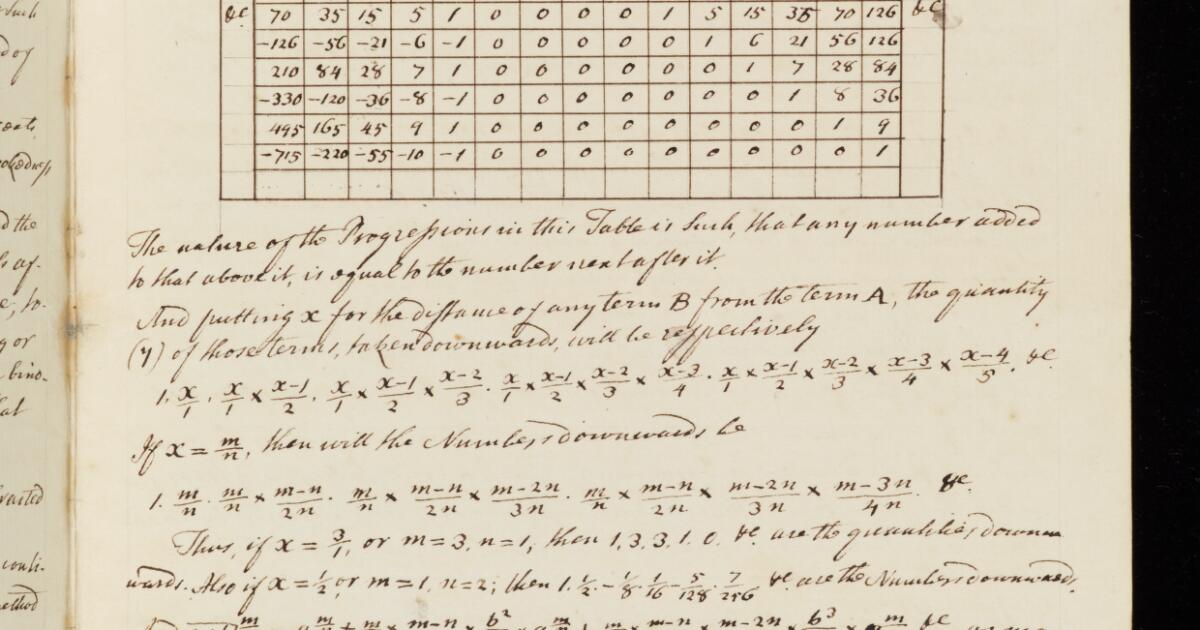 &c 70 35 15 5 1 0 0 0 0 1 5 15 35 70 126 &c
-126 -56 -21 -6 -1 0 0 0 0 0 1 6 21 56 126
210 84 28 7 1 0 0 0 0 0 0 1 7 28 84
-330 -120 -36 -8 -1 0 0 0 0 0 0 0 1 8 36
495 165 45 9 1 0 0 0 0 0 0 0 0 1 9
-715 -220 -55 -10 -1 0 0 0 0 0 0 0 0 0 1
The nature of the Progressions in this Table is Such, that any number added
to that above it, is equal to the number next after it.
And putting x for the distance of any term B from the term A, the quantity
(y) of those terms, taken downwards, will be respectively
1. x/1. x/1 × x-1/2. x/1 × x-1/2 × x-2/3. x/1 × x-1/2 × x-2/3 × x-3/4. x/1 × x-1/2 × x-2/3 × x-3/4 × x-4/5. &c
If x = m/n, then will the Numbers downwards be
1. m/n. m/n × m-n/2n. m/n × m-n/2n × m-2n/3n. m/n × m-n/2n × m-2n/3n × m-3n/4n. &c.
Thus, if x = 3/1, or m=3, n=1; then 1,3,3,1.0. &c are the quantities down
wards. Also if x = 1/2 or m=1, n=2; then 1. 1/2. -1/8. 1/16 -5/128. 7/256 &c are the Numbers downwards.